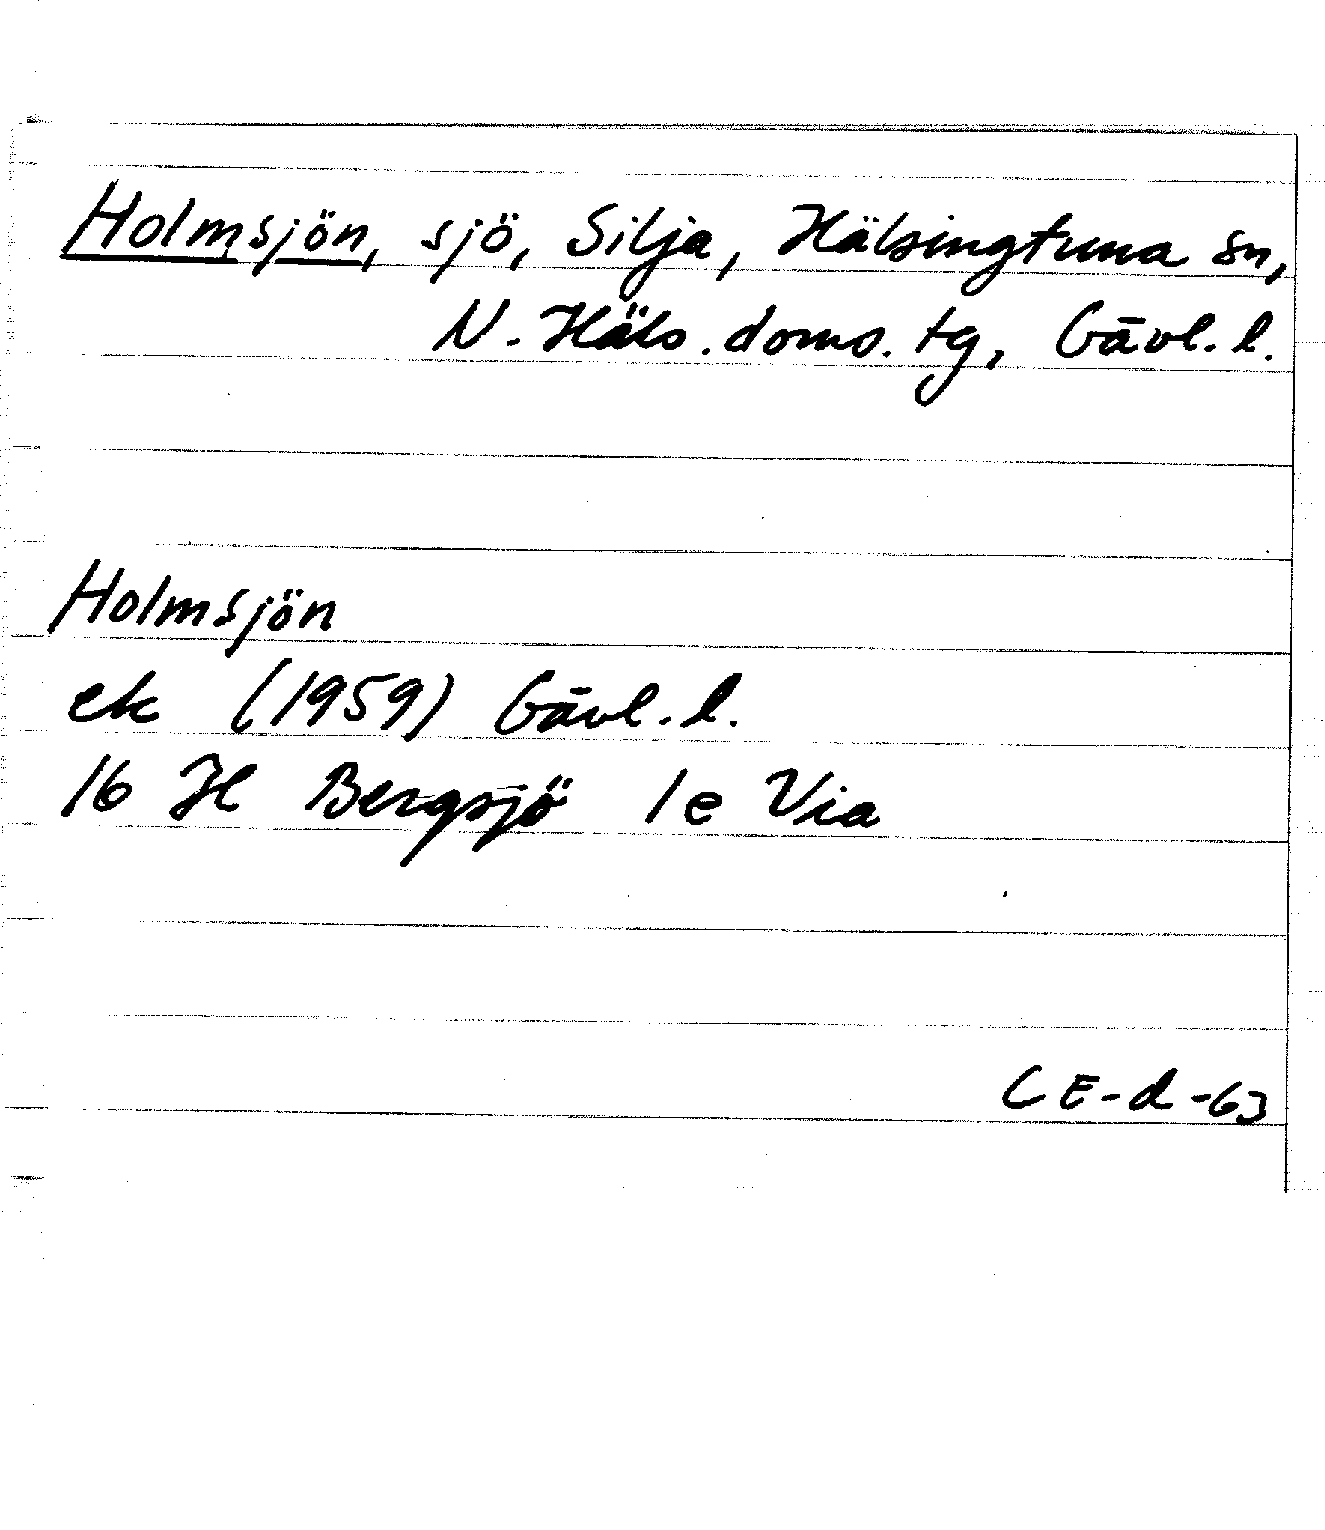 Holmsjön, sjö, Silja, Hälsingtuna sn,
N. Häls. doms. tg, Gävl. l.
Holmsjön
ek (1959) Gävl. l.
16 H Bergsjö 1e Via
CE-d-63